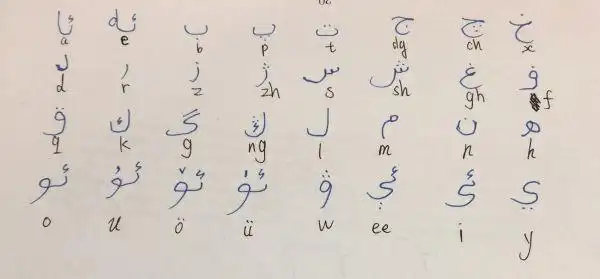 ئا ئە ب پ ت ج چ خ
a e b p t dg ch x
د ر ز ژ س ش غ ف
d r z zh s sh gh f
ق ك گ ڭ ل م ن ھ
q k g ng l m n h
ئو ئۇ ئۆ ئۈ ۋ ئې ئى ي
o u ö ü w ee i y